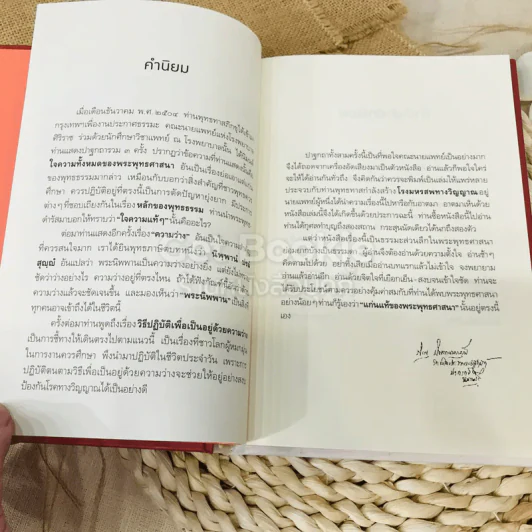 คำนิยม
เมื่อเดือนธันวาคม พ.ศ.๒๕๐๔ ท่านพุทธทาสภิกขุได้เข้ามา
กรุงเทพเพื่องานประกาศธรรมะ คณะนายแพทย์แห่งโรงพยาบาล
ศิริราช ร่วมด้วยนักศึกษาวิชาแพทย์ ณ โรงพยาบาลนั้น ได้นิมนต์
ท่านแสดงปาฐกถาธรรม ๓ ครั้ง ปรากฏว่าข้อความที่ท่านแสดงนั้นคือ
ใจความทั้งหมดของพระพุทธศาสนา อันเป็นเรื่องย่อและแก่น
ของพุทธธรรมมากกว่า เหมือนกับบอกว่าสิ่งสำคัญที่ชาวพุทธควร
ศึกษา ควรปฏิบัติอยู่ที่ตรงนี้เป็นการตัดปัญหายุ่งยาก มีประการ
ต่าง ๆ ที่ชอบเถียงกันในเรื่อง หลักของพุทธธรรม ท่านนำพระพุทธ
ดำรัสมาบอกให้ทราบว่า "ใจความแท้ๆ" นั้นคืออะไร
ต่อมาท่านแสดงอีกครั้งเรื่อง "ความว่าง" อันเป็นใจความ
ที่ควรสนใจมาก เราได้ยินพุทธภาษิตบทหนึ่งว่า นิพพานํ ปรมํ
สุญฺญํ อันแปลว่า พระนิพพานเป็นความว่างอย่างยิ่ง แต่ยังไม่
ชัดว่าว่างอย่างไร ความว่างอยู่ที่ตรงไหน ถ้าได้ฟังเรื่อง
ความว่างแล้วจะชัดเจนขึ้น และมองเห็นว่า "พระนิพพาน" เป็นสิ่งที่
ทุกคนอาจเข้าถึงได้ในชีวิตนี้
ครั้งต่อมาท่านพูดถึงเรื่อง วิธีปฏิบัติเพื่อเป็นอยู่ด้วยความว่าง
เป็นการชี้ทางให้เดินตรงไปตามแนวนี้ เป็นเรื่องที่ชาวโลกผู้หมกมุ่น
ในการงานควรศึกษา พึงนำมาปฏิบัติในชีวิตประจำวัน เพราะการ
ปฏิบัติตนตามวิธีเพื่อเป็นอยู่ด้วยความว่างจะช่วยให้อยู่อย่างสงบ
ป้องกันโรคทางวิญญาณได้เป็นอย่างดี
ปาฐกถาทั้งสามครั้งนี้เป็นที่พอใจคณะนายแพทย์เป็นอย่างมาก
จึงได้ถอดจากเครื่องอัดเสียงมาเป็นตัวหนังสือ อ่านแล้วก็พอใจใคร่
จะให้ได้อ่านกันทั่วถึง จึงคิดกันว่าควรจะพิมพ์เป็นเล่มให้แพร่หลาย
ประจวบกับท่านพุทธทาสกำลังสร้าง โรงมหรสพทางวิญญาณ อยู่
นายแพทย์ผู้หนึ่งที่ได้นำความเรื่องนี้ไปหารือกับอาตมา อาตมาเห็นด้วย
หนังสือเล่มนี้จึงได้เกิดขึ้นด้วยประการฉะนี้ ท่านซื้อหนังสือนี้ไปอ่าน
ท่านได้กุศลทำบุญถึงสองสถาน กระสุนนัดเดียวได้นกถึงสองตัว
แต่ว่าหนังสือเรื่องนี้เป็นธรรมะส่วนลึกในพระพุทธศาสนา
สุขุมอย่างน่าดื่มด่ำ ผู้อ่านจึงต้องอ่านด้วยความตั้งใจ อ่านช้าๆ
คิดตามไปด้วย อย่าทิ้งเสียเมื่ออ่านบทแรกแล้วไม่เข้าใจ จงพยายาม
อ่านแล้วอ่านอีก อ่านด้วยจิตใจที่เยือกเย็น-สงบจนเข้าใจชัด ท่านจะ
ได้รับประโยชน์ตามความประสงค์คุ้มค่าสมกับที่ท่านได้พบพระพุทธศาสนา
อย่างน้อยๆ ท่านก็รู้เองว่า "แก่นแท้ของพระพุทธศาสนา" นั้นอยู่ตรงนี้
เอง